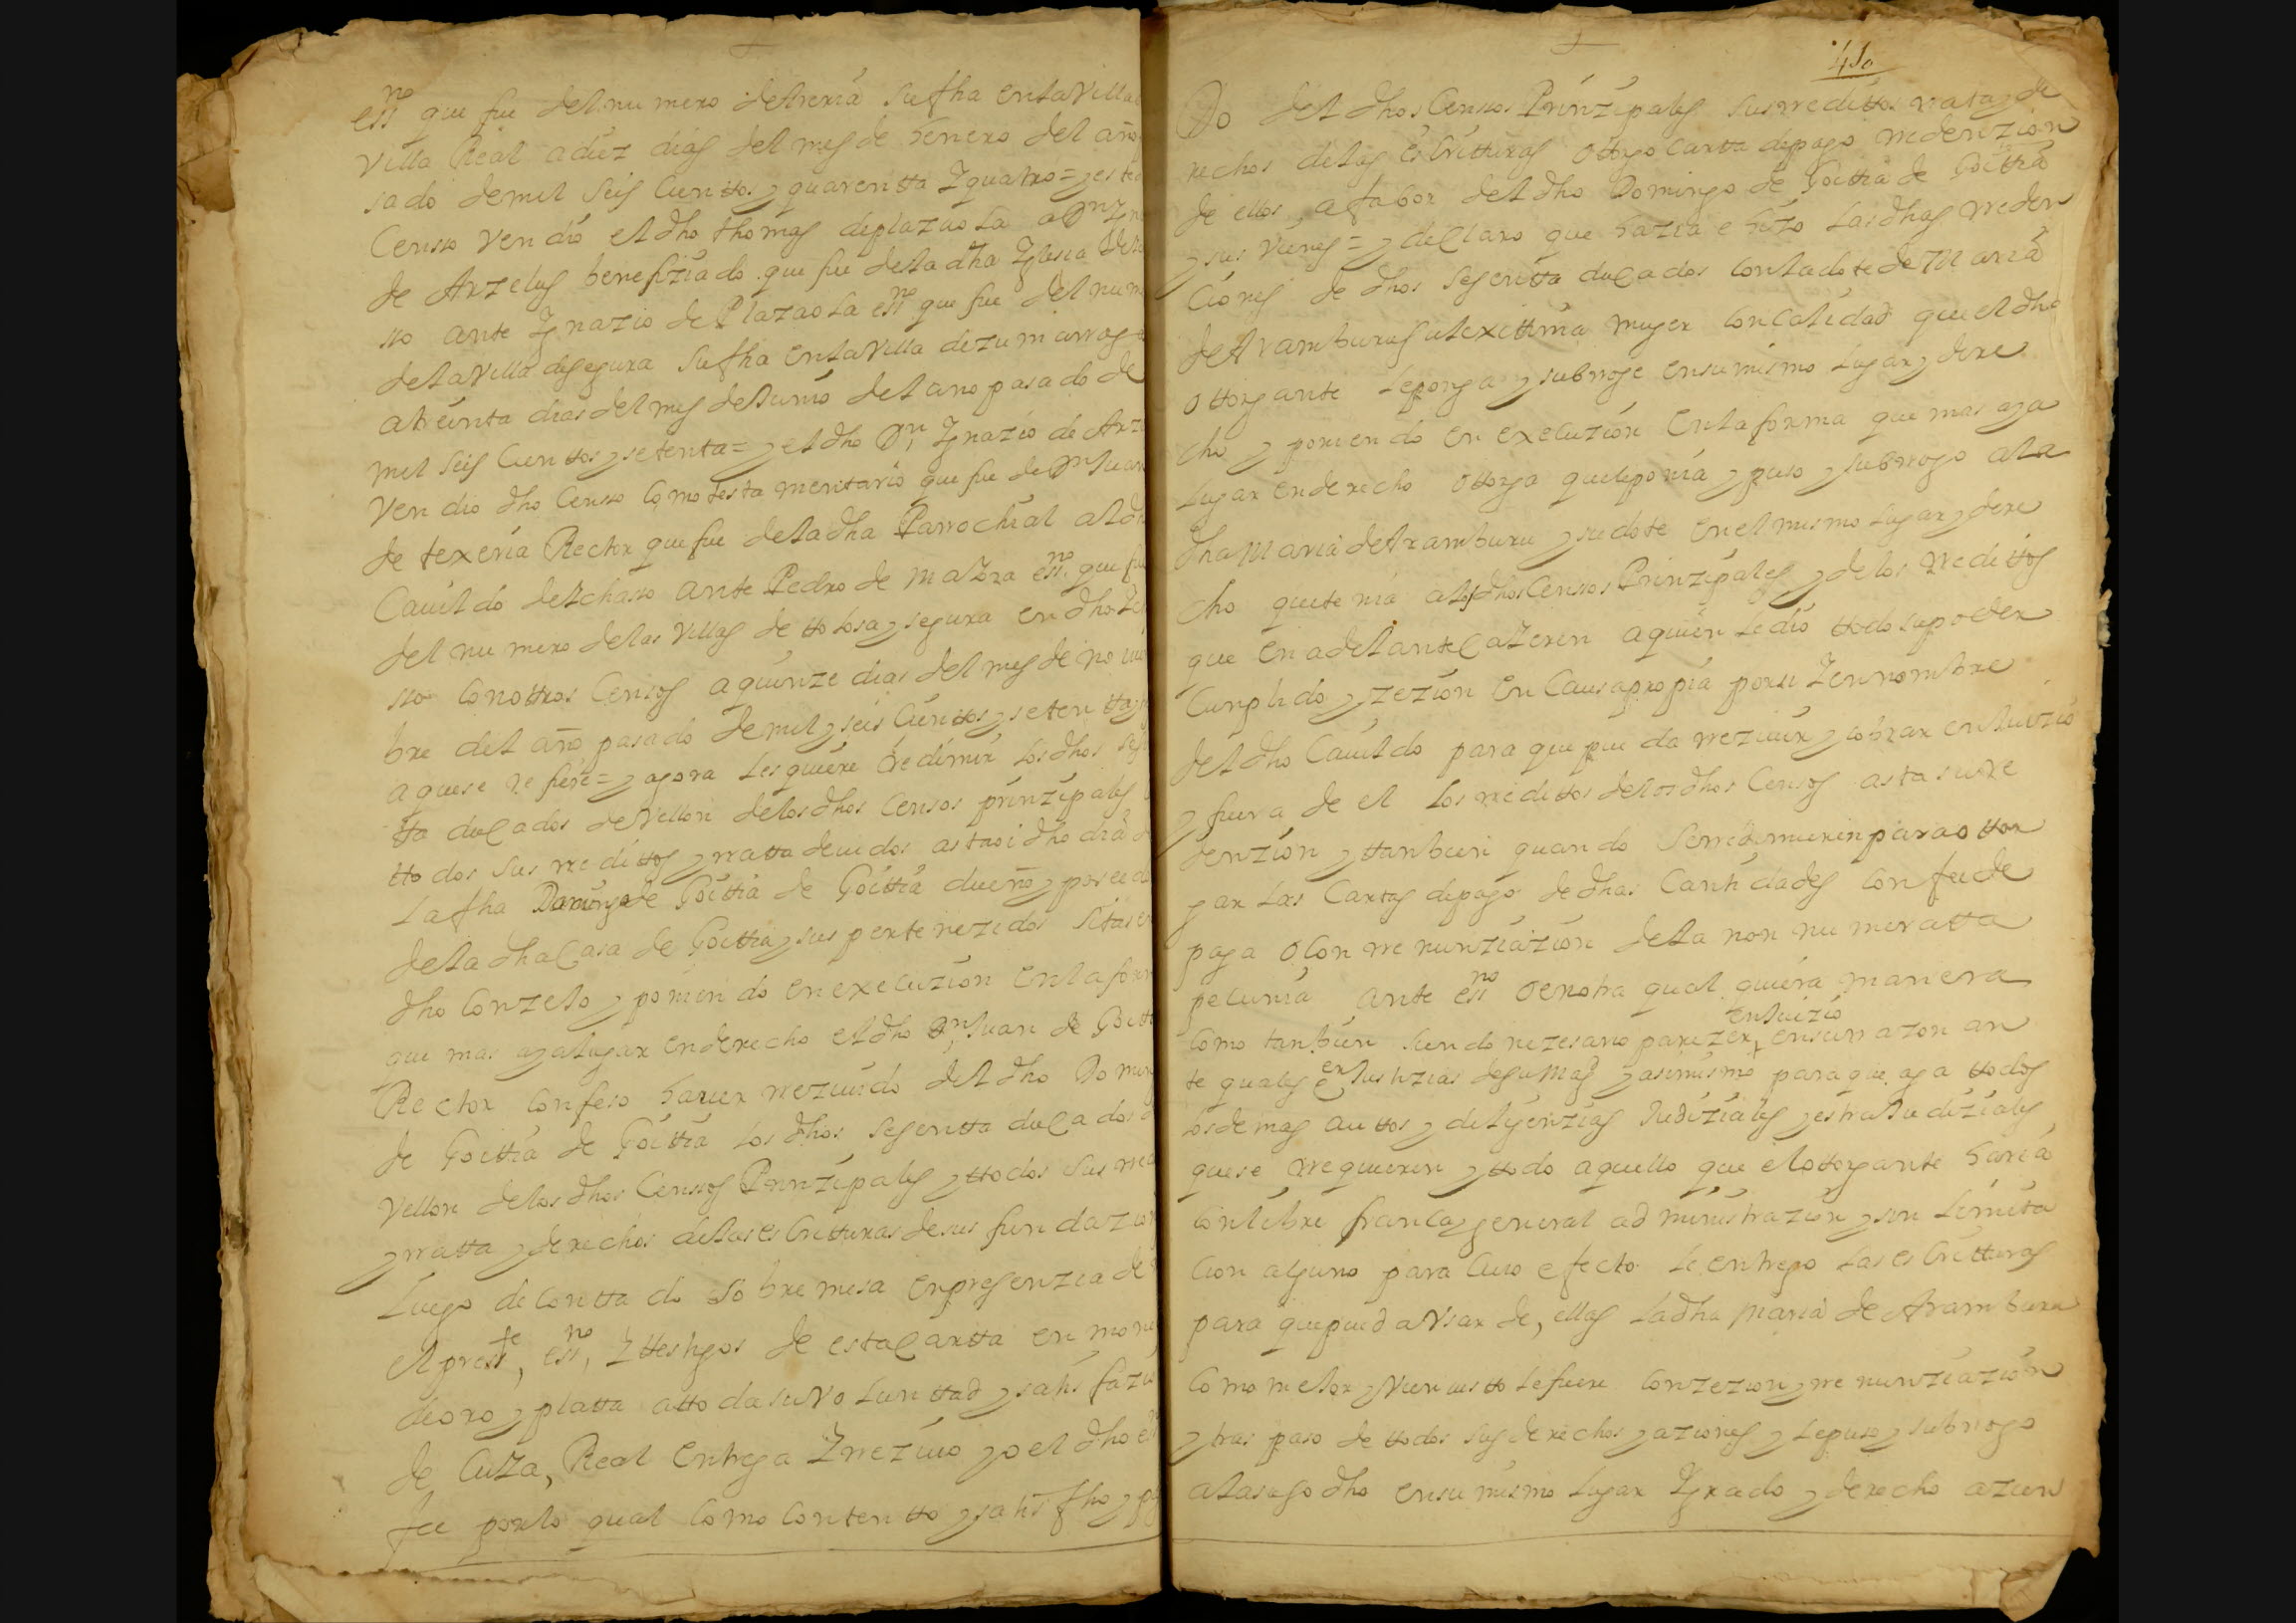 essno que fue del numero de Areria su fha en la Villa
Villa Real a diez dias del mes de henero del año
sado de mil seis cientos y quarentta y quatro = y este
Censso vendio el dho thomas de plazaola a Dn Ygn
de Arzelus benefiziado que fue de la dha Yglesia de
sso ante Ygnazio de Plazaola essno que fue del num
de la Villa de segura su fha en la Villa de zumarraga
a treinta dias del mes de Junio del ano pasado de
mil seis cientos y setenta = y el dho Dn Ygnazio de Arz
Vendio dho Censso como testamentario que fue de Dn Juan
de texeria Rector que fue de la dha Parrochial al dh
Cauildo de Ychasso ante Pedro de mazra essno que fu
del numero de las Villas de ttolosa y segura en dho Ych
sso con ottros Censos a quinze dias del mes de nouie
bre del año pasado de mil y seis cientos y setentta y
a que se refiere = y agora les quiere rredimir los dhos ses
tta ducados de Vellon de los dhos Censos prinzipales
ttodos sus rredittos y rratta deuidos asta oi dho dia
la fha Domingo de Goittia de Goittia dueño y poseedo
de la dha Casa de Goittia y sus pertenezidos sitas en
dho Conzejo y poniendo en execuzion en la form
que mas aya lugar en derecho el dho Dn Juan de Goitt
Rector confeso hauer rreziuido del dho Doming
de Goittia de Goittia los dhos sesentta ducados d
Vellon de los dhos Censsos Prinzipales y ttodos sus rred
y rratta y derechos de las escritturas de sus fundazion
luego de conttado sobre mesa en presenzia de
el presste, essno, y ttestigos de esta Cartta en mone
de oro y platta a ttoda su Volunttad y satisfazio
de Cuia, Real entrega y rreziuo yo el dho ess
fee por lo qual como contentto y satisfho y pag
410
Do del dhos Censsos Prinzipales sus rredittos rrata y de
rechos de las escritturas ottorgo cartta de pago y rredenzion
de ellos, a fabor del dho Domingo de Goittia de Goittia
y sus vienes = y declaro que hazia e hizo las dhas rreden
ciones de dhos sesentta ducados con la dote de Maria
de Aramburu su lexittima muger con calidad que el dho
ottorgante le ponga y subrroge en su mismo lugar y dere
cho y poniendo en execuzion en la forma que mas aya
lugar en derecho ottorga que le ponia y puso y subrrogo a la
dha Maria de Aramburu y su dote en el mismo lugar y dere
cho que tenia a los dhos Censos Prinzipales y de los rredittos
que en adelante Cayeren a quien le dio ttodo su poder
Cunplido y zezion en Causa propia por si y en nombre
del dho Cauildo para que pueda rreziuir y cobrar en Juizio
y fuera de el los rredittos de los dhos Censos asta su rre
denzion y ttanbien quando se rredimieren para ottor
gar las Cartas de pago de dhas Cantidades con fee de
paga o con rrenunziazion de la non numeratta
pecunia ante essno o en otra qual quiera manera
como tanbien siendo nezesario parezer en Juizio en su rrazon an
te quales er Justizias de su Magd y asimismo para que aga ttodos
los demas auttos y diligenzias Judiziales y estraJudiziales
que se rrequieren y ttodo aquello que el ottorgante haria
con libre franca y general administrazion y sin limita
cion alguna para cuio efecto le entrego las escritturas
para que pueda Vsar de, ellas la dha Maria de Aramburu
como mejor y Vien uistto le fuere con zezion y rrenunziazion
y traspaso de ttodos sus derechos y aziones y le puso y subrrogo
a la suso dho en su mismo lugar y grado y derecho a zien